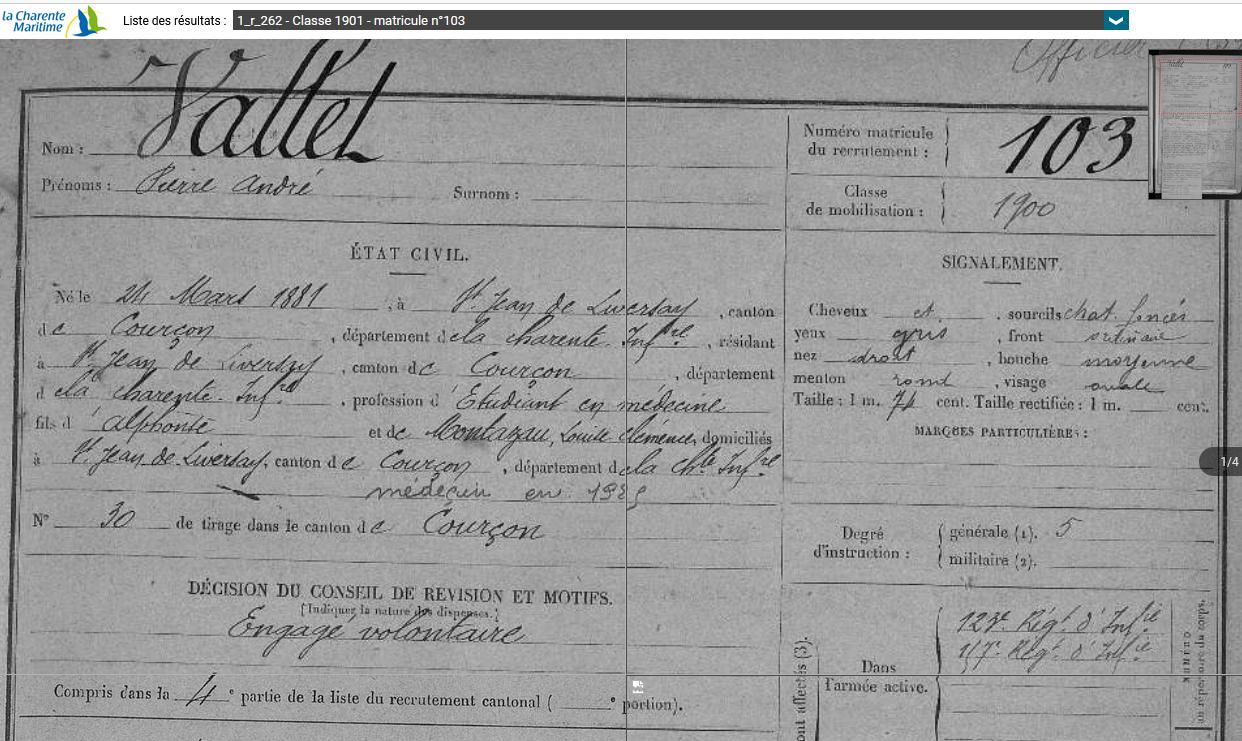 la Charente
Maritime
Liste des résultats :
1_r_262 - Classe 1901 - matricule n°103
Officier
Nom : Vallet
Prénoms : Pierre André Surnom :
Numéro matricule
du recrutement : 103
Classe
de mobilisation : 1900
ÉTAT CIVIL.
Né le 24 Mars 1881, à St Jean de Liversay, canton
de Courçon, département de la charente. Infre, résidant
à St Jean de Liversay, canton de Courçon, département
d e la charente. Infre, profession d'Etudiant en médecine
fils d'alphonse et de Montazau, Louise clémence, domiciliés
à St. Jean de Liversay, canton de Courçon, département de la chte Infre
médecin en
N° 30 de tirage dans le canton de Courçon
SIGNALEMENT.
Cheveux et sourcils chat. foncés
yeux gris, front ordinaire
nez droit, bouche moyenne
menton rond, visage ovale
Taille : 1 m. 74 cent. Taille rectifiée : 1 m. cent.
MARQUES PARTICULIÈRES :
1/4
Degré
d'instruction :
générale (1). 5
militaire (2).
DÉCISION DU CONSEIL DE REVISION ET MOTIFS.
(Indiquer la nature des dispenses.)
Engagé volontaire
Compris dans la 4e partie de la liste du recrutement cantonal ( e portion).
ont affectés (3).
Dans
l'armée active.
123e Régt d'Infie
Régt d'Infie
NUMÉRO
au répertoire du corps.